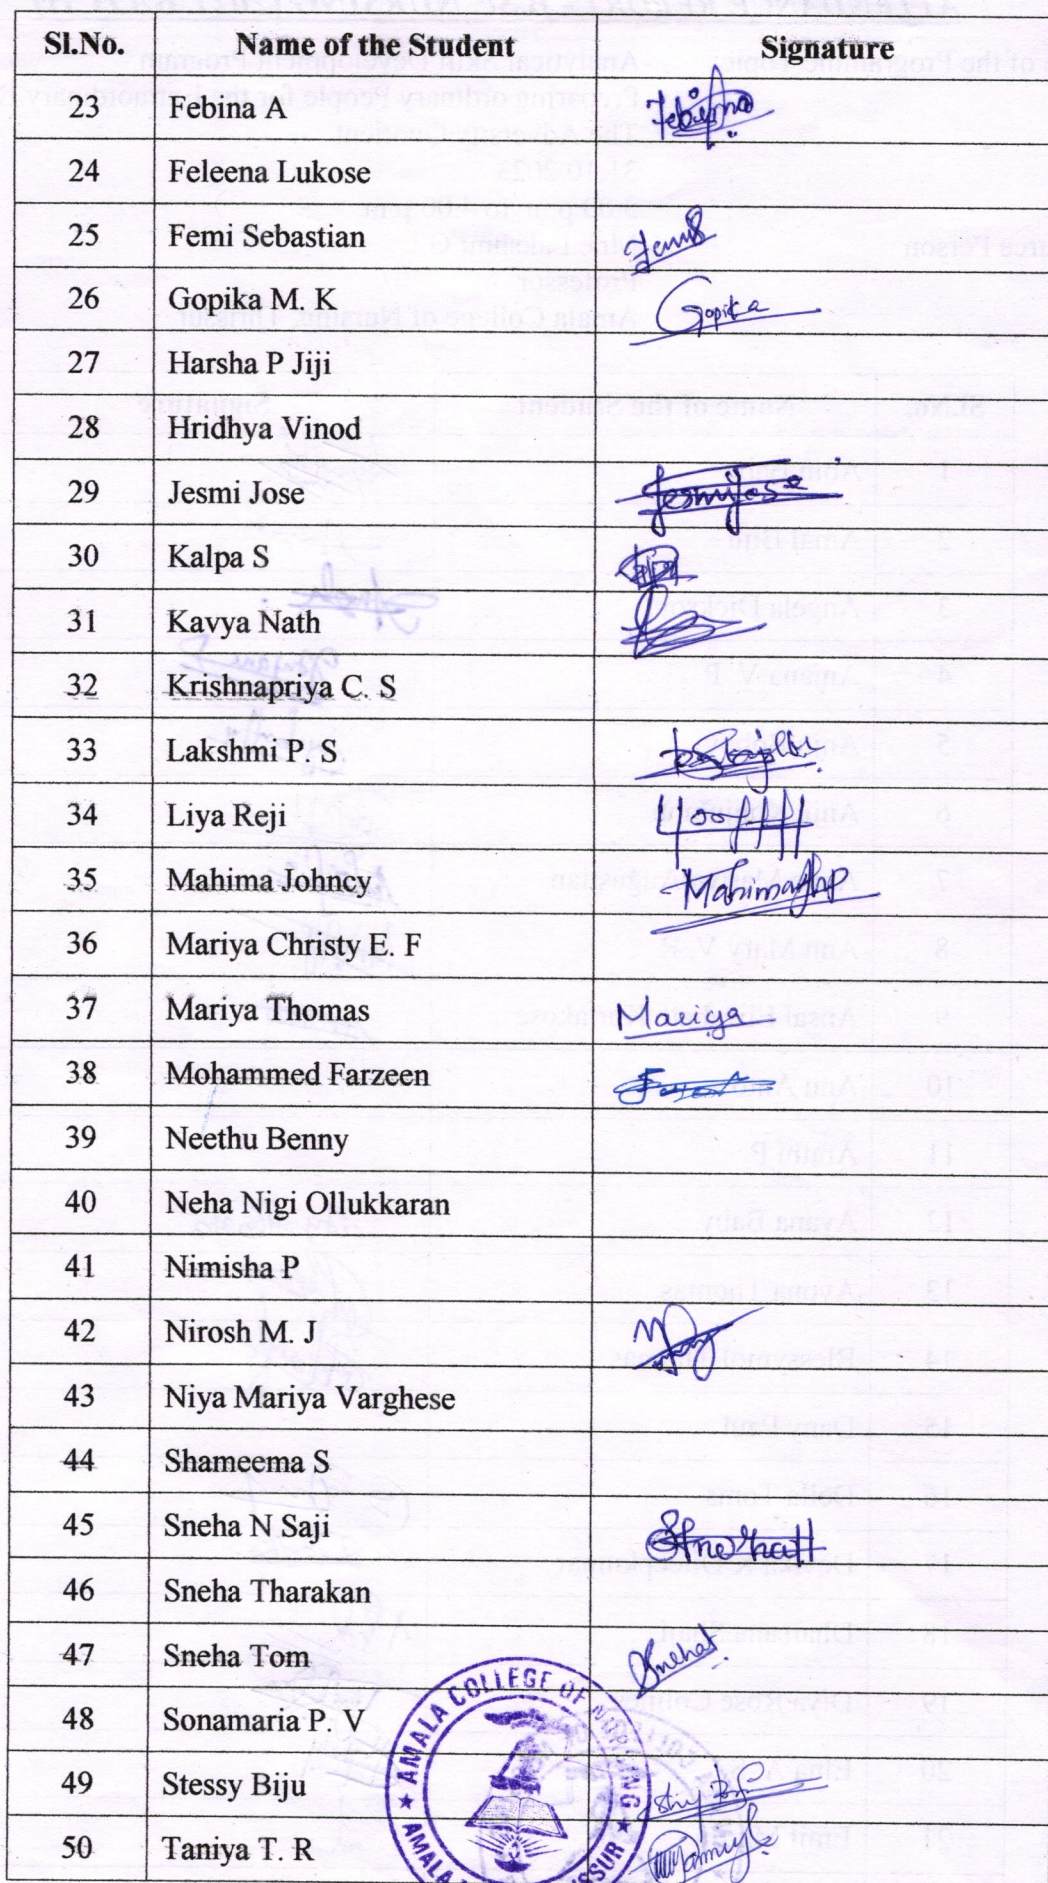 Sl.No. Name of the Student Signature
23 Febina A Febina
24 Feleena Lukose
25 Femi Sebastian Femi
26 Gopika M. K Gopika
27 Harsha P Jiji
28 Hridhya Vinod
29 Jesmi Jose Jesmi Jose
30 Kalpa S
31 Kavya Nath
32 Krishnapriya C. S
33 Lakshmi P. S
34 Liya Reji
35 Mahima Johncy Mahima
36 Mariya Christy E. F
37 Mariya Thomas Mariya
38 Mohammed Farzeen
39 Neethu Benny
40 Neha Nigi Ollukkaran
41 Nimisha P
42 Nirosh M. J
43 Niya Mariya Varghese
44 Shameema S
45 Sneha N Saji
46 Sneha Tharakan
47 Sneha Tom Sneha
48 Sonamaria P. V
49 Stessy Biju
50 Taniya T. R
AMALA COLLEGE OF NURSING